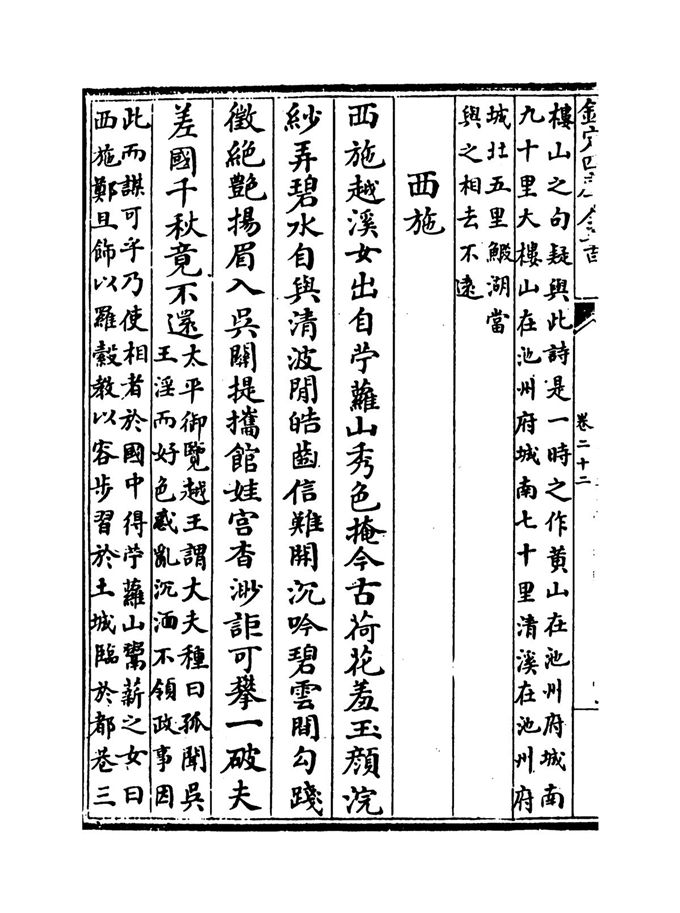 欽定四庫全書
卷二十二
樓山之句疑與此詩是一時之作黄山在池州府城南
九十里大樓山在池州府城南七十里清溪在池州府
城北五里鰕湖當
與之相去不逺
西施
西施越溪女出自苧蘿山秀色掩今古荷花羞玉顔浣
紗弄碧水自與清波閒皓齒信難開沉吟碧雲間勾踐
徵絶艷揚眉入吳闗提攜館娃宫杳渺詎可攀一破夫
差國千秋竟不還
太平御覽越王謂大夫種曰孤聞吳
王淫而好色惑亂沉湎不領政事因
此而謀可乎乃使相者於國中得苧蘿山鬻薪之女曰
西施鄭旦飾以羅縠教以容步習於土城臨於都巷三